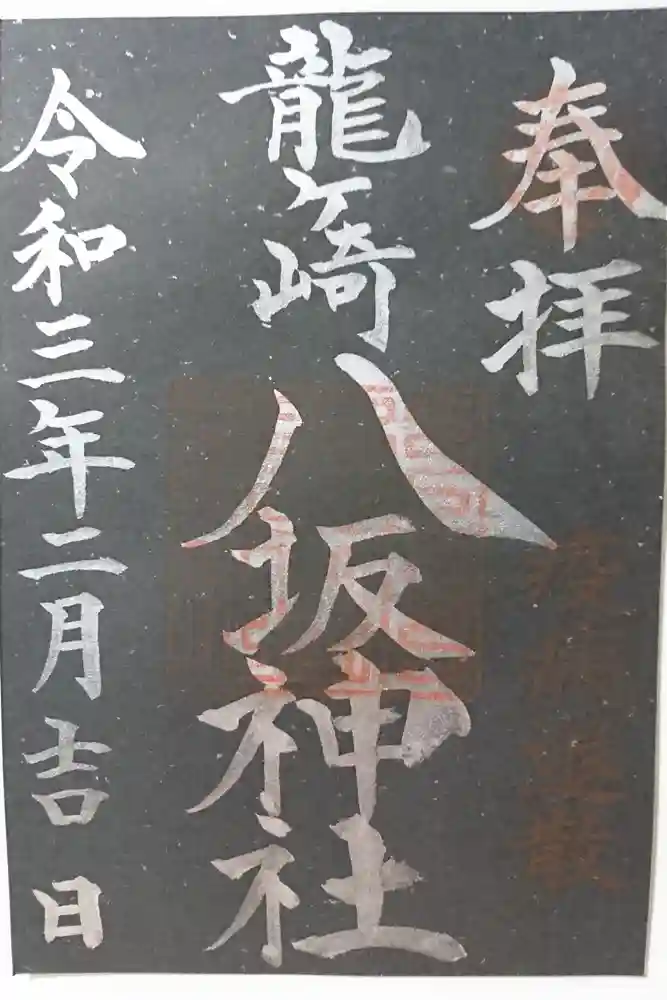 奉拝
龍ヶ崎
八坂神社
令和三年二月吉日